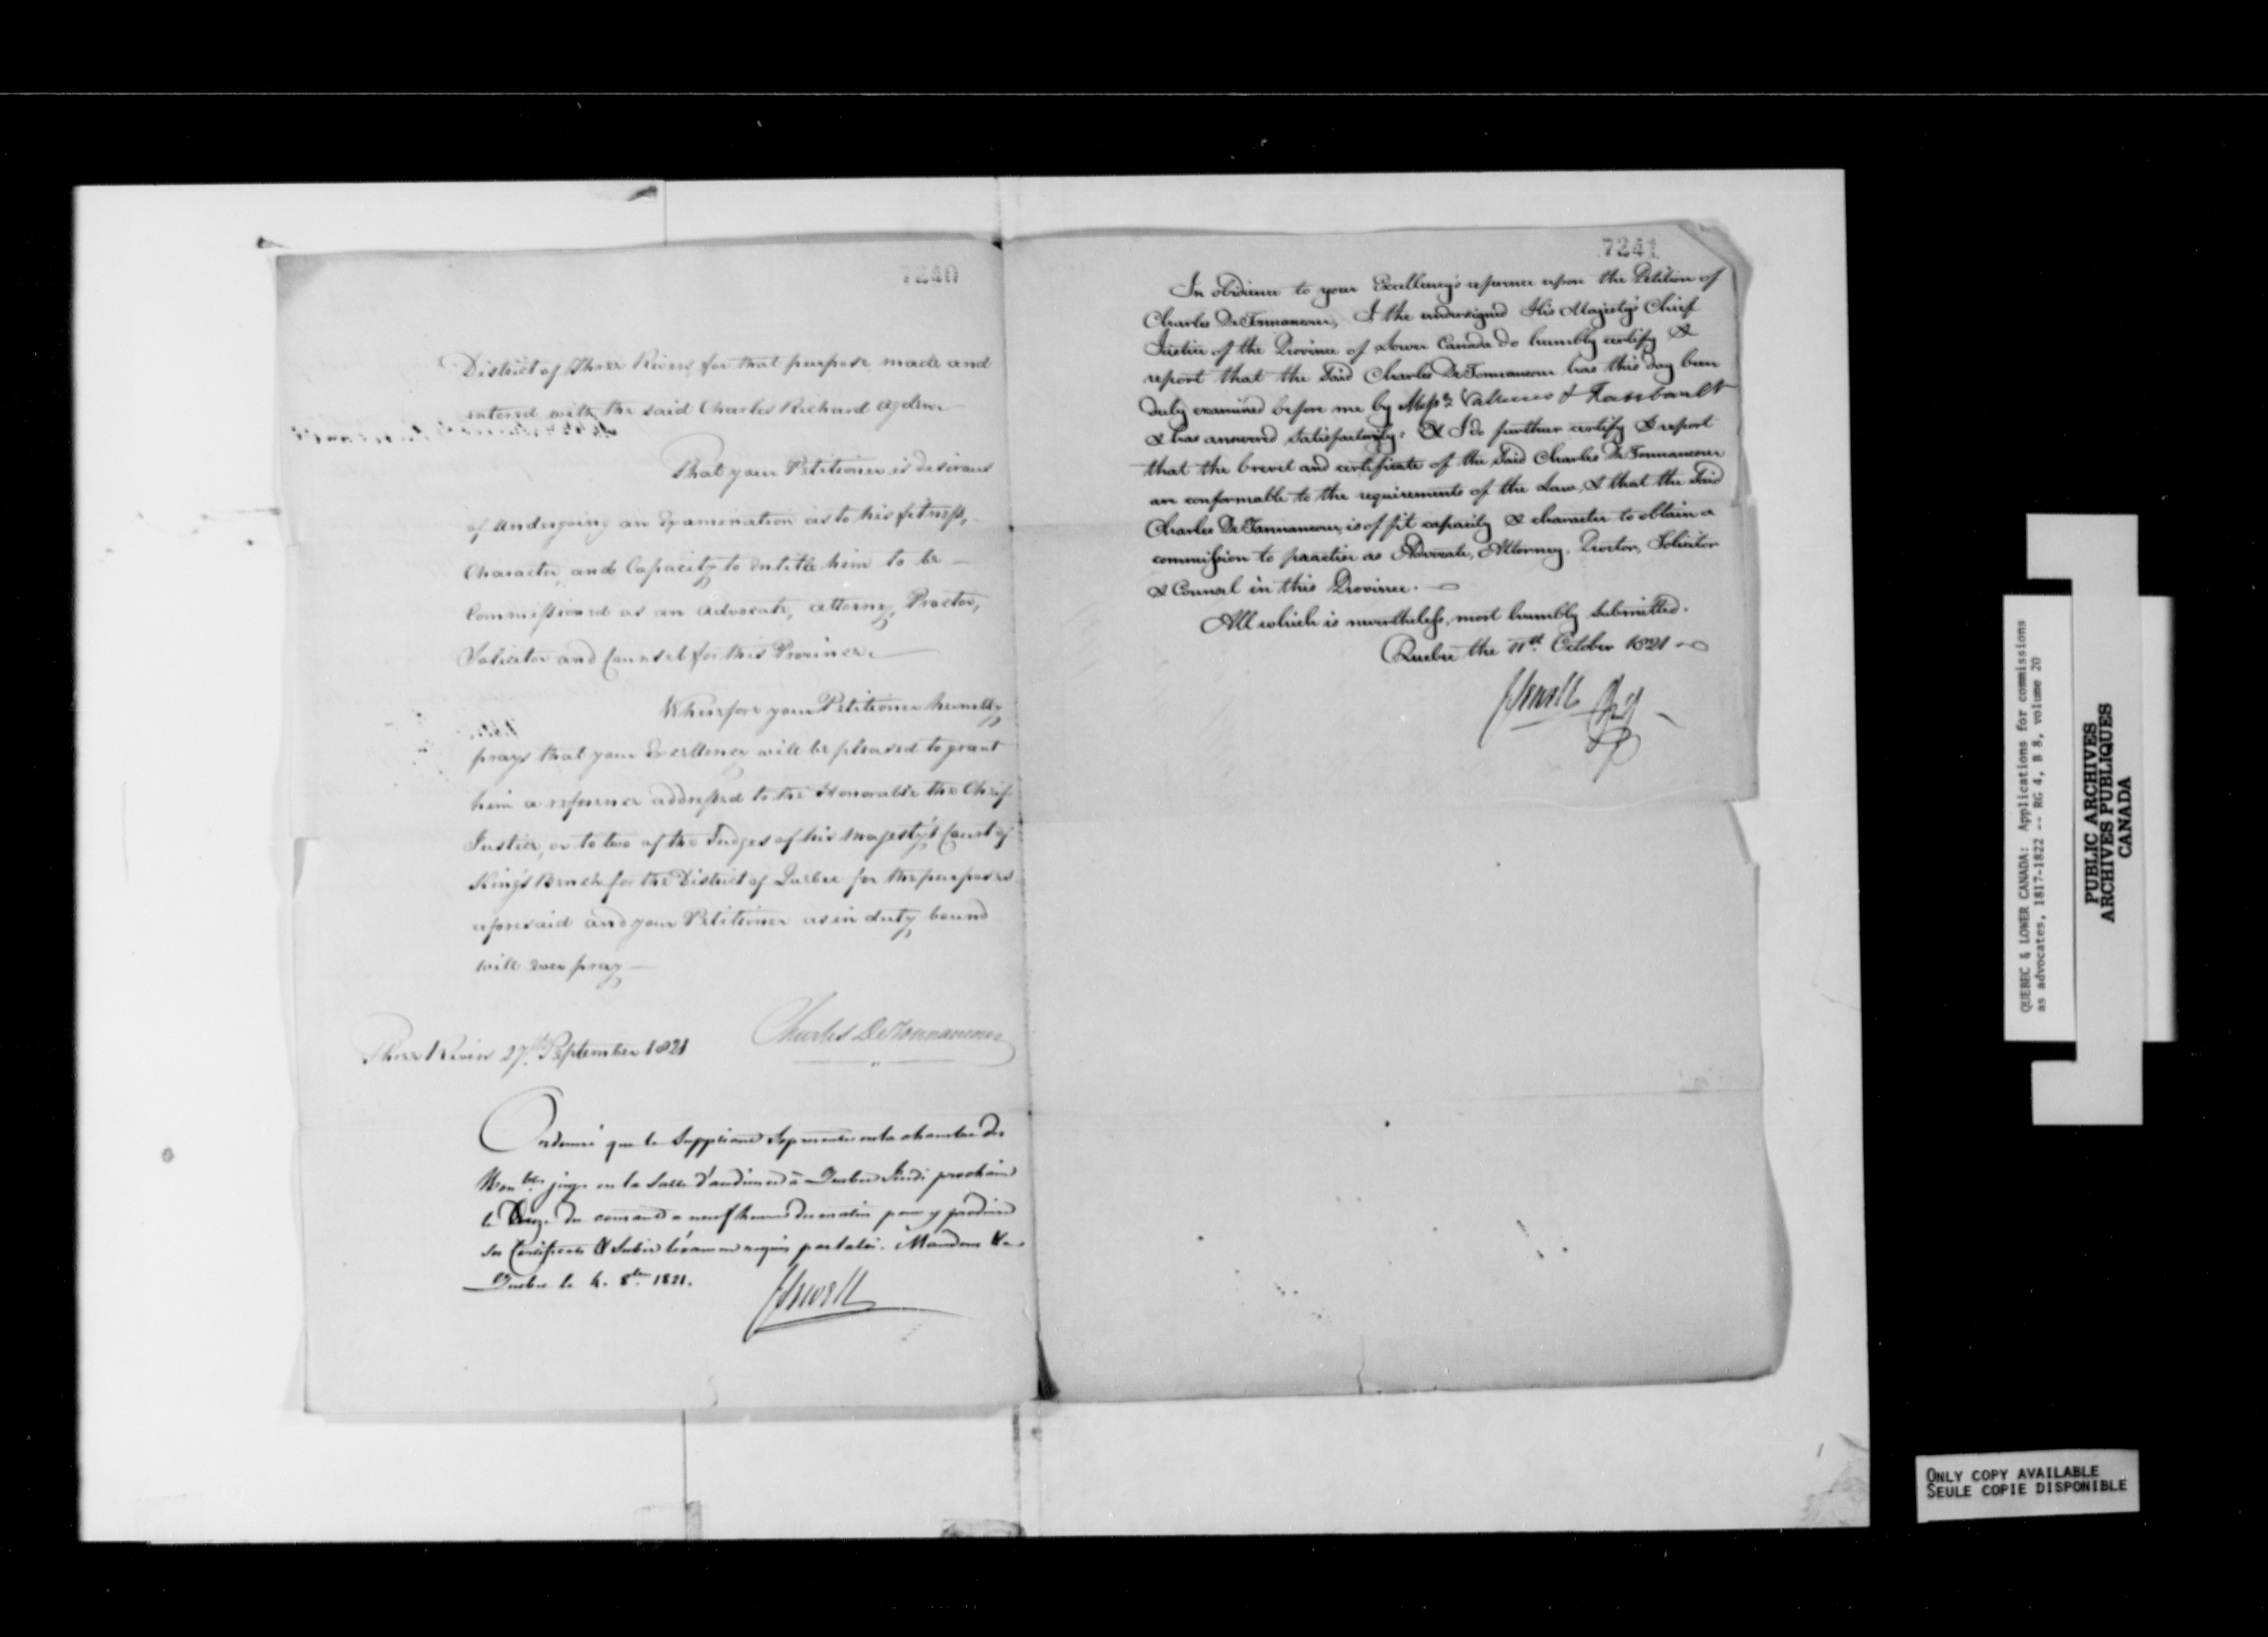 7240
District of Three Rivers, for that purpose made and
entered with the said Charles Richard Ogden
That your Petitioner is desirous
of undergoing an Examination as to his fitness,
Character and Capacity to entitle him to be
Commissioned as an Advocate, Attorney, Proctor,
Solicitor and Counsel for this Province.
Wherefore your Petitioner humbly
prays that your Excellency will be pleased to grant
him a reference addressed to the Honorable the Chief
Justice, or to two of the Judges of his Majesty's Court of
King's Bench for the District of Quebec for the purposes
aforesaid and your Petitioner as in duty bound
will ever pray
Charles DeTonnancour
Three Rivers 27th September 1821
Ordonné que le Suppliant se presente en la chambre des
Honbles juges en la Salle d'audience à Quebec Jeudi prochain
le Onze du courant a neuf heures du matin pour y produire
ses Certificats & Subir l'examen requis par la loi. Mandons &a
Quebec le 4. 8bre 1821.
JSewell
7241
In obedience to your Excellency's reference upon the Petition of
Charles DeTonnancour, I the undersigned His Majesty's Chief
Justice of the Province of Lower Canada do humbly certify &
report that the Said Charles DeTonnancour has this day been
duly examined before me by Messrs Vallieres &
& has answered satisfactorily: & I do further certify & report
that the brevet and certificate of the Said Charles DeTonnancour
are conformable to the requirements of the Law, & that the Said
Charles DeTonnancour is of fit capacity & character to obtain a
commission to practise as Advocate, Attorney, Proctor, Solicitor
& Counsel in this Province.
All which is nevertheless most humbly Submitted.
Quebec the 11th October 1821
JSewell
QUEBEC & LOWER CANADA: Applications for commissions
as advocates, 1817-1822 -- RG 4, B 8, volume 20
PUBLIC ARCHIVES
ARCHIVES PUBLIQUES
CANADA
ONLY COPY AVAILABLE
SEULE COPIE DISPONIBLE